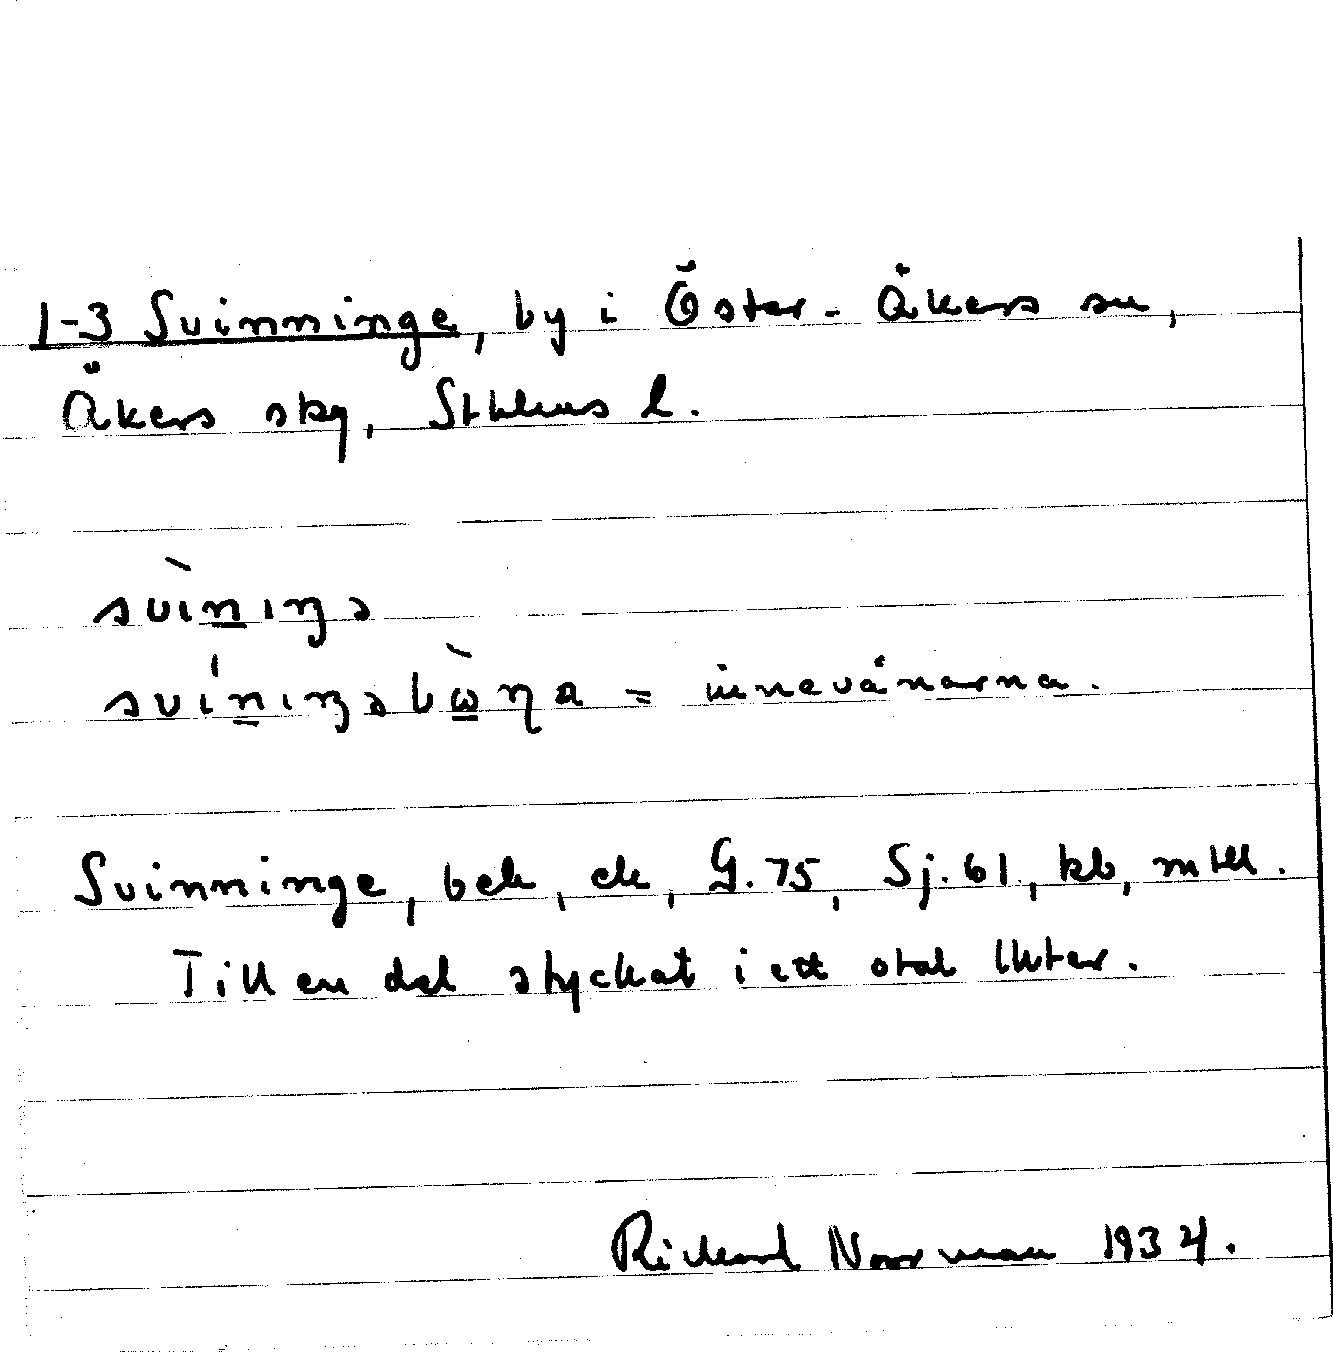 1-3 Svinninge, by i Öster-Åkers sn,
Åkers skg, Sthlms l.
svìniŋə
svíniŋəbὼɳa = innevånarna.
Svinninge, bek, ek, G. 75, Sj. 61, kb, mtll.
Till en del styckat i ett otal lhter.
Rickard Norrman 1934.